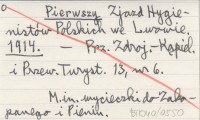 Pierwszy Zjazd Hygie-
nistów Polskich we Lwowie,
1914. — Prz. Zdroj.-Kąpiel.
i Przew. Turyst. 13, nr 6.
M.in. wycieczki do Zako-
panego i Pienin.